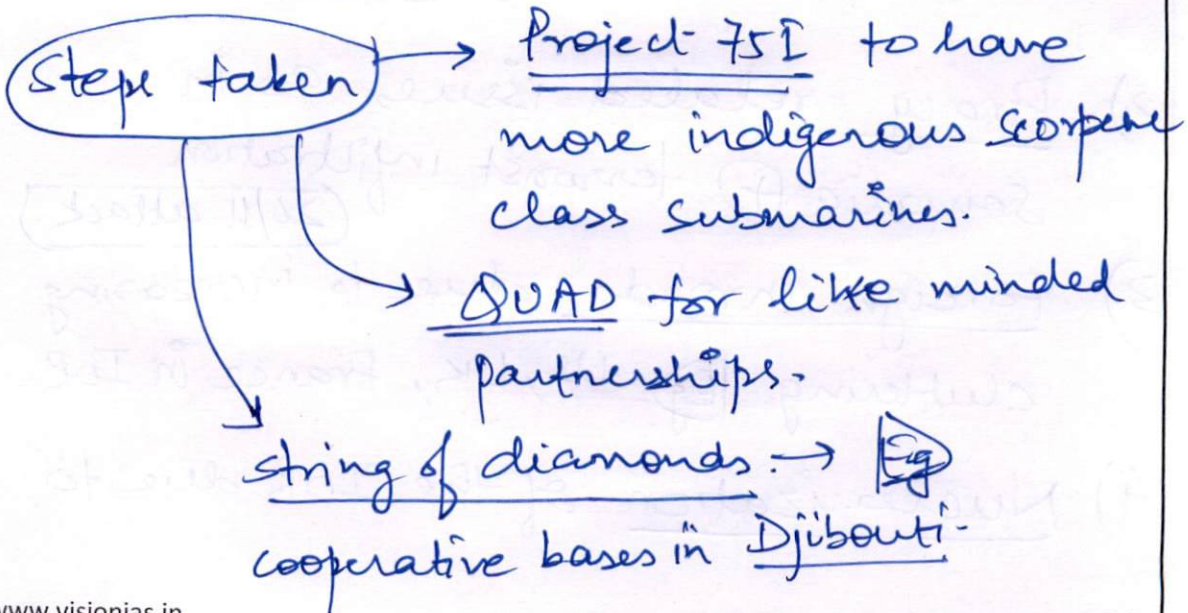 Steps taken → Project 75I to have
more indigenous scorpene
class submarines.
→ QUAD for like minded
partnerships.
string of diamonds. → Eg
cooperative bases in Djibouti.
www.visionias.in